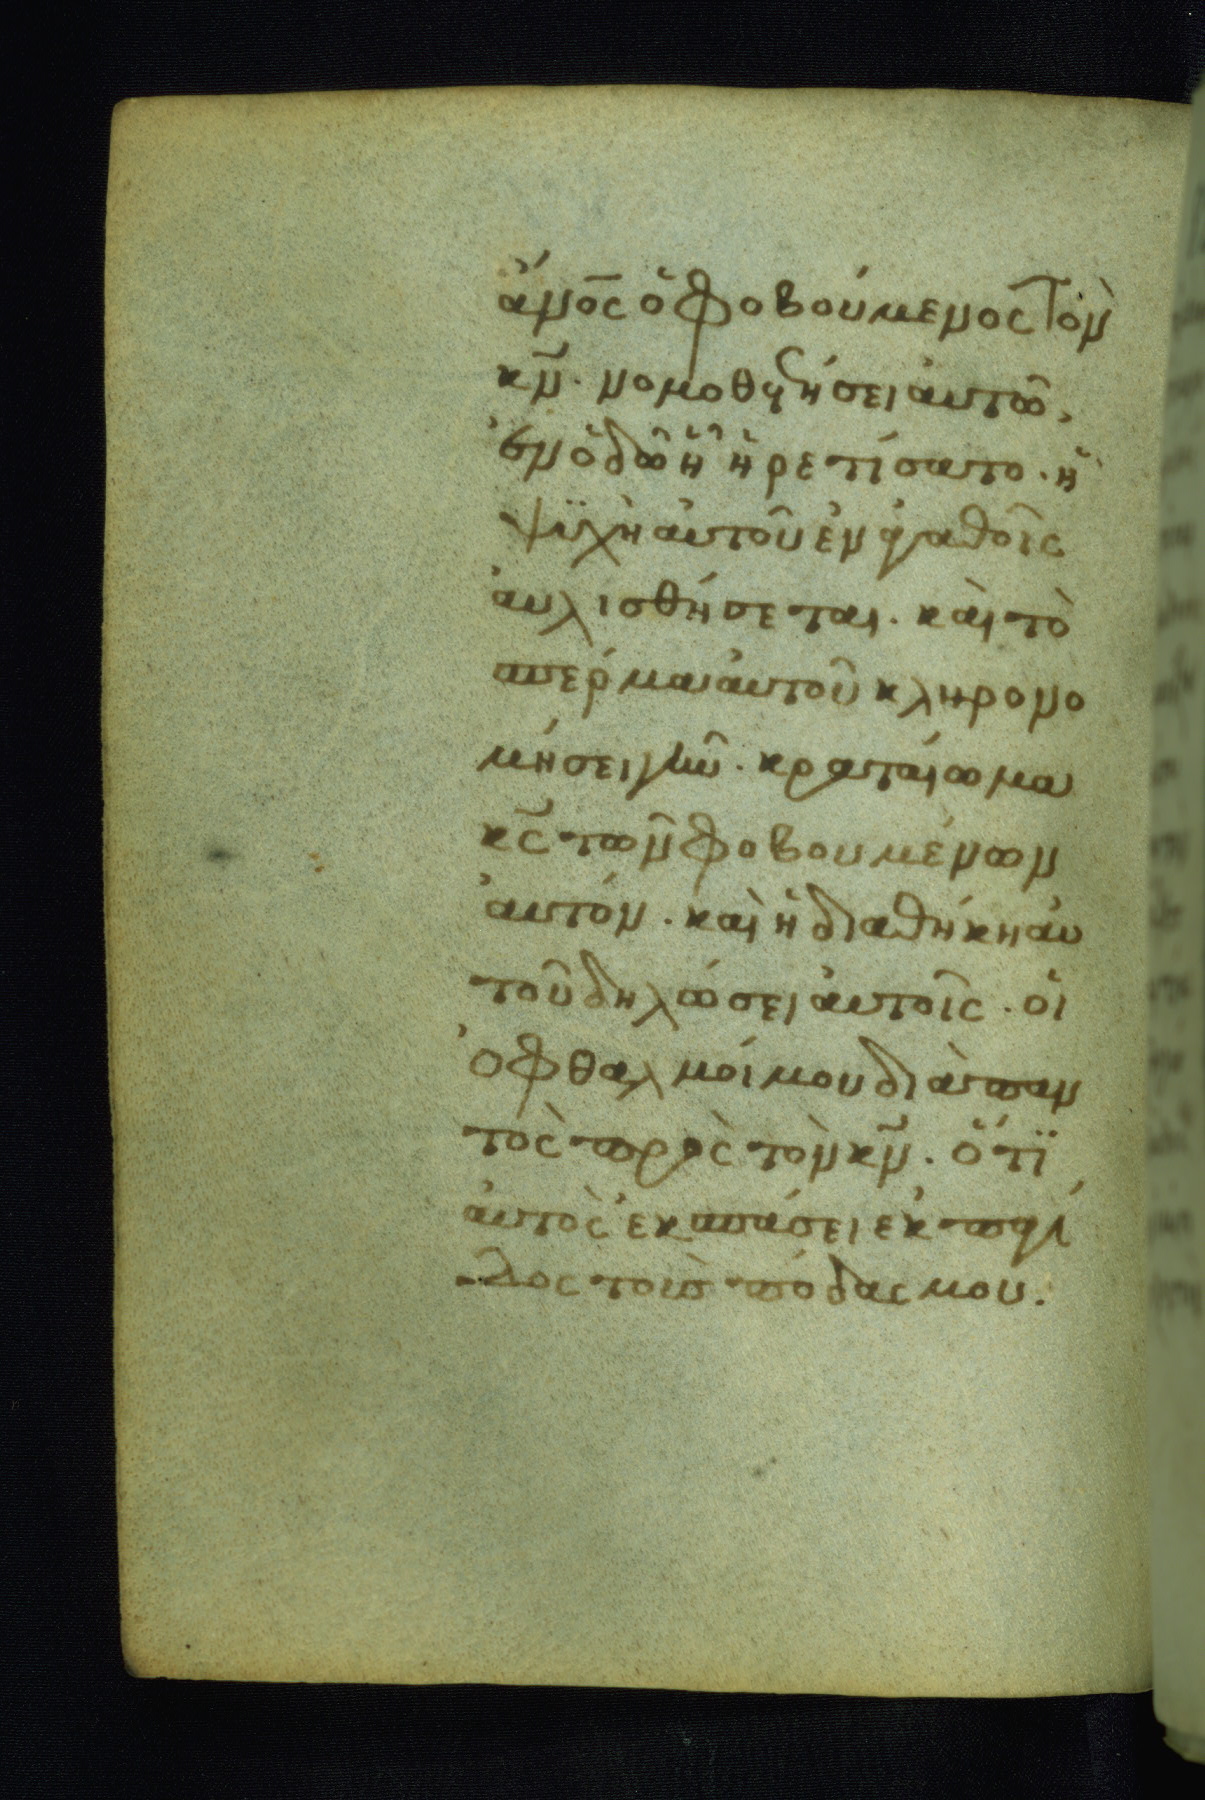 ἄνος ὁ φοβούμενος τὸν
κν̄. νομοθετήσει ἀυτῶ,
ἐν ὁδῶ ἧ ἡρετίσατο. ἡ
ψϋχὴ ἀυτοῦ ἐν ἀγαθοῖς
ἀυλισθήσεται. κὰι τὸ
σπέρμα ἀυτοῦ κληρονο
μήσει γῆν. κραταίωμα
κς̄ τῶν φοβουμένων
ἀυτόν. καὶ ἡ διαθήκη ἀυ
τοῦ δηλώσει ἀυτοῖς. ὁι
ὀφθαλμόι μου διὰ παν
τὸς πρὸς τὸν κν̄. ὅτϊ
ἀυτὸς ἐκσπάσει ἐκ παγί
δος τοὺς πόδας μου.